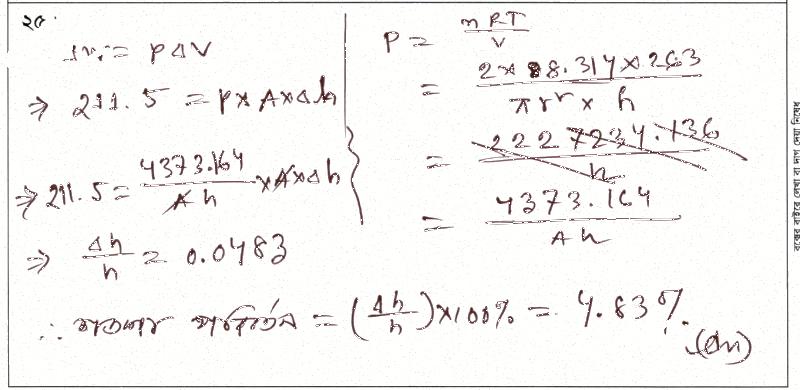 ২৫.
= PΔV
⇒ 211.5 = P×A×Δh
⇒ 211.5 = 4373.164 / A h ×A×Δh
⇒ Δh / h = 0.0483
P = nRT / V
= 2×8.314×263 / πr² × h
= 2227234.136 / h
= 4373.164 / Ah
∴ পরিবর্তন = (Δh / h)×100% = 4.83%.
(An)
বক্সের বাইরে লেখা বা দাগ দেয়া নিষেধ